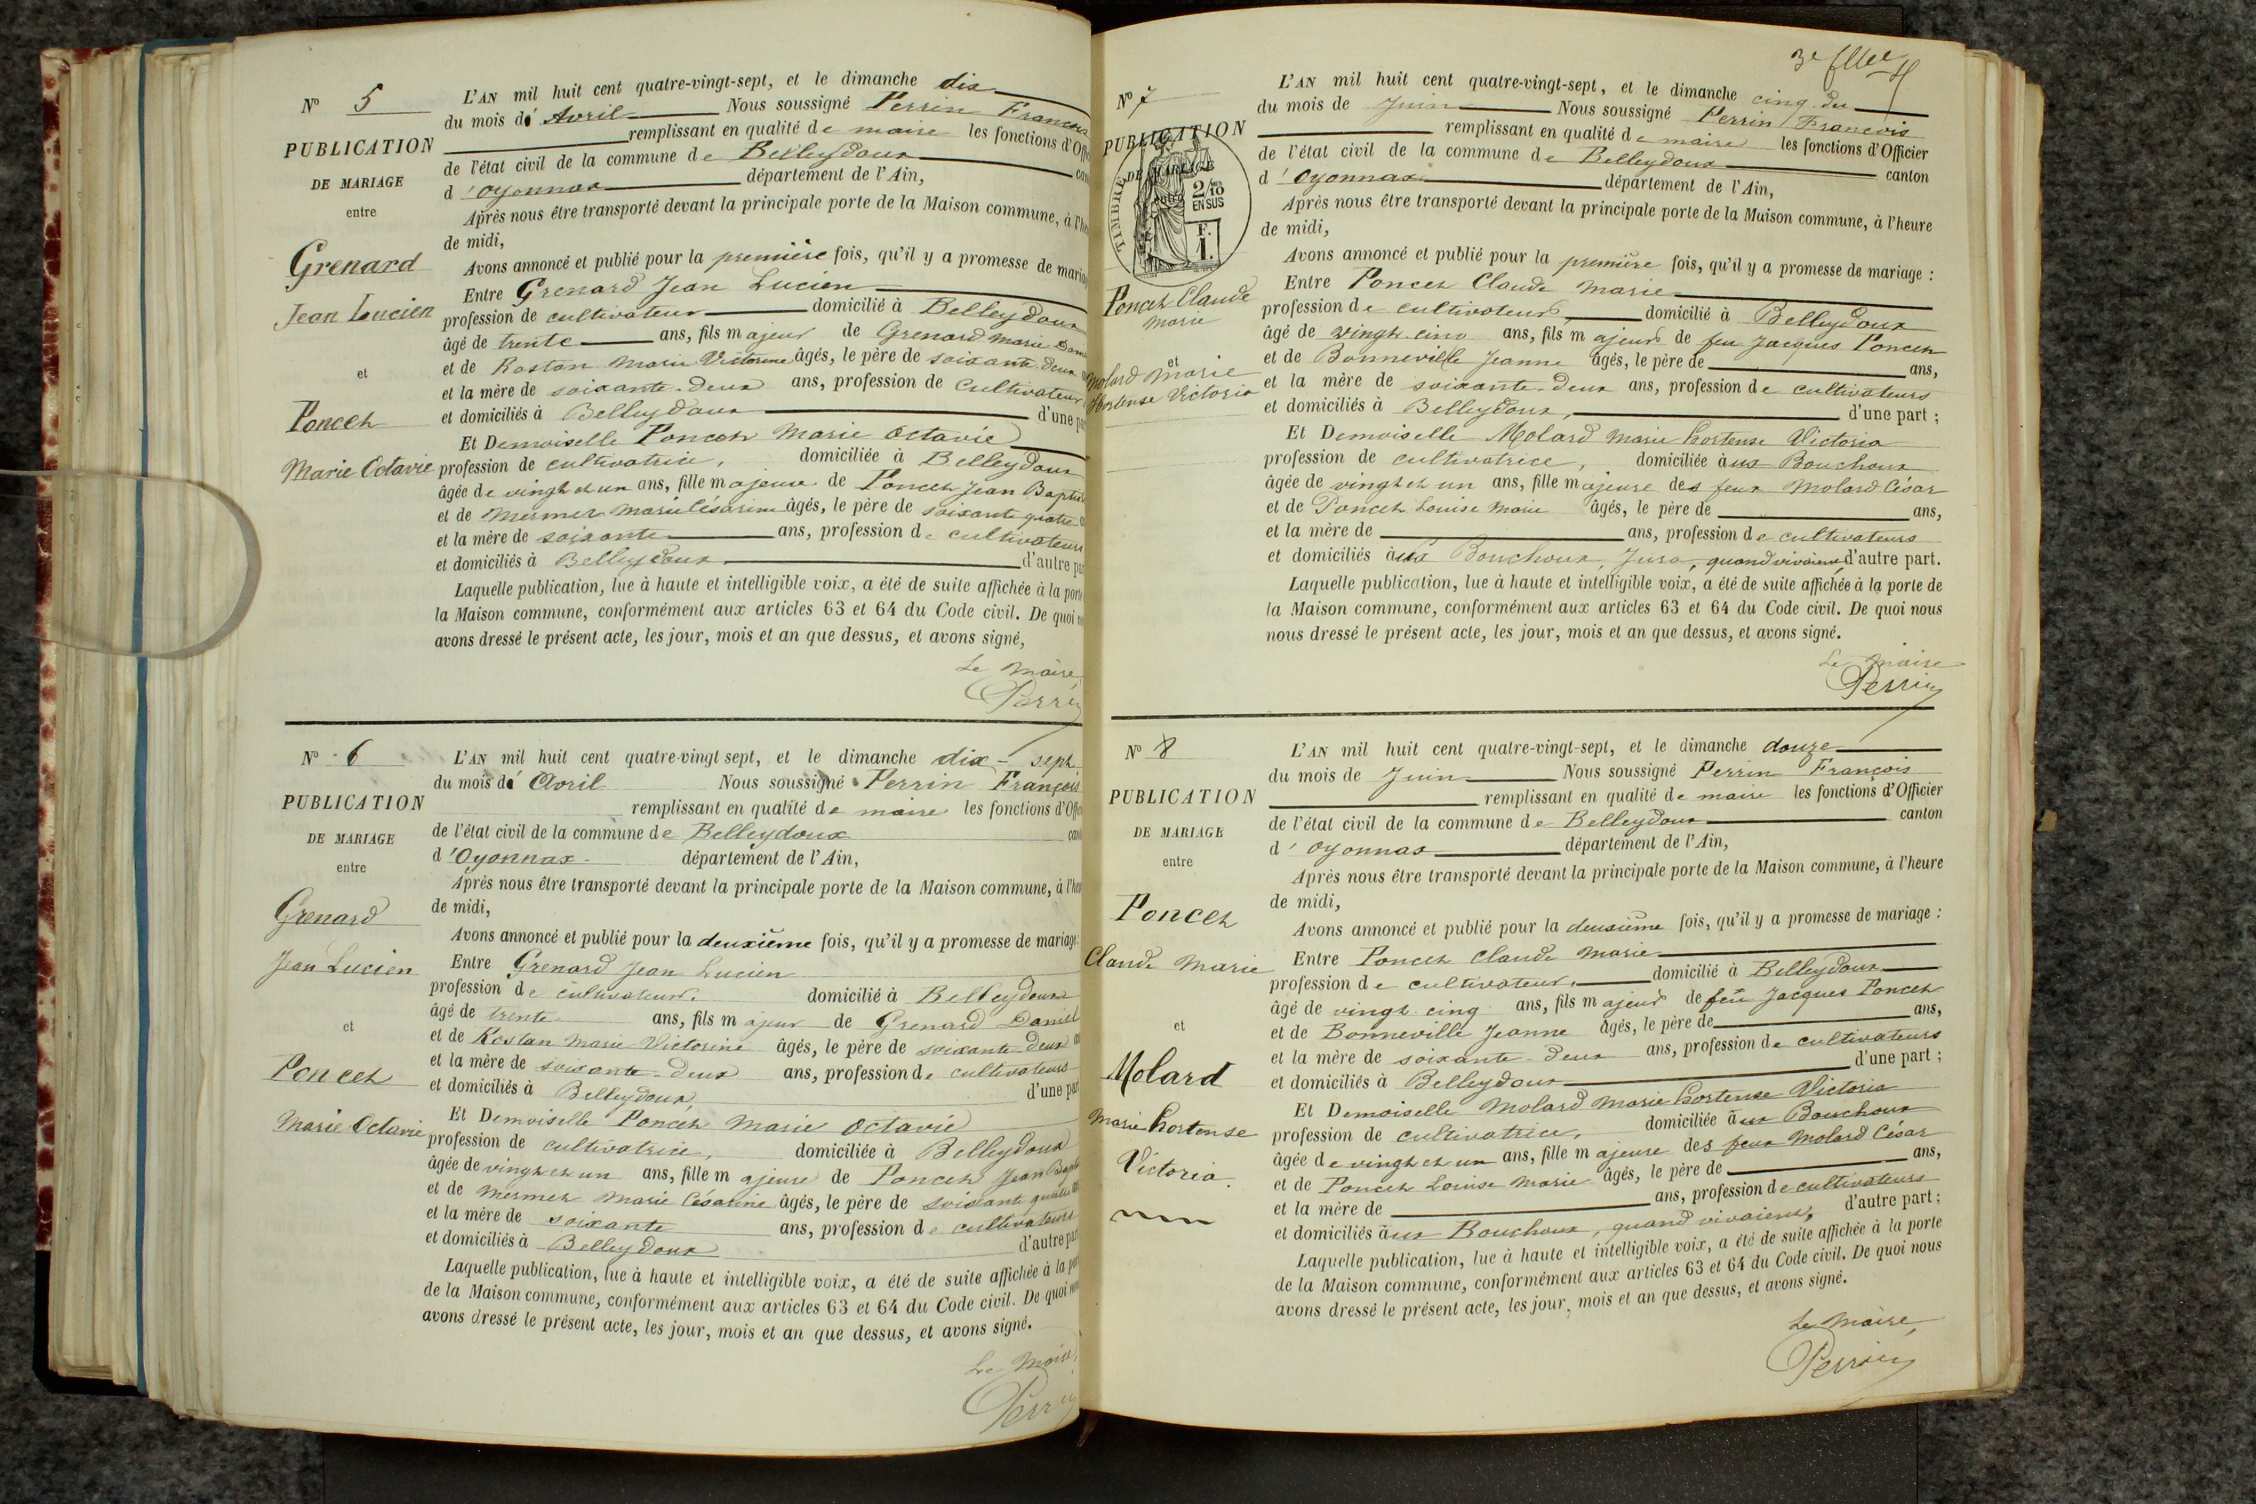 N° 5
PUBLICATION
DE MARIAGE
entre
Grenard
Jean Lucien
et
Poncet
Marie Octavie
L'AN mil huit cent quatre-vingt-sept, et le dimanche dix
du mois d' Avril Nous soussigné Perrin François
remplissant en qualité de maire les fonctions d'Offi
de l'état civil de la commune de Belleydoux can
d'Oyonnax département de l'Ain,
Après nous être transporté devant la principale porte de la Maison commune, à l'he
de midi,
Avons annoncé et publié pour la première fois, qu'il y a promesse de mariag
Entre Grenard Jean Lucien
profession de cultivateur domicilié à Belleydoux
âgé de trente ans, fils majeur de Grenard Marie Dani
et de Rostan Marie Victorine âgés, le père de soixante-deux
et la mère de soixante-deux ans, profession de Cultivateur
et domiciliés à Belleydoux d'une pa
Et Demoiselle Poncet Marie Octavie
profession de cultivatrice, domiciliée à Belleydoux
âgée de vingt et un ans, fille majeure de Poncet Jean Baptis
et de Mermet Marie Césarine âgés, le père de soixante quatre
et la mère de soixante ans, profession de cultivateurs
et domiciliés à Belleydoux d'autre pa
Laquelle publication, lue à haute et intelligible voix, a été de suite affichée à la porte
la Maison commune, conformément aux articles 63 et 64 du Code civil. De quoi n
avons dressé le présent acte, les jour, mois et an que dessus, et avons signé,
Le Maire,
Perrin
N° 6
PUBLICATION
DE MARIAGE
entre
Grenard
Jean Lucien
et
Poncet
Marie Octavie
L'AN mil huit cent quatre-vingt sept, et le dimanche dix-sept
du mois d' Avril Nous soussigné Perrin François
remplissant en qualité de maire les fonctions d'Offi
de l'état civil de la commune de Belleydoux can
d'Oyonnax département de l'Ain,
Après nous être transporté devant la principale porte de la Maison commune, à l'heu
de midi,
Avons annoncé et publié pour la deuxième fois, qu'il y a promesse de mariage:
Entre Grenard Jean Lucien
profession de cultivateur. domicilié à Belleydoux
âgé de trente ans, fils majeur de Grenard Daniel
et de Rostan Marie Victorine âgés, le père de soixante-deux an
et la mère de soixante-deux ans, profession de cultivateurs
et domiciliés à Belleydoux d'une par
Et Demoiselle Poncet Marie Octavie
profession de cultivatrice, domiciliée à Belleydoux
âgée de vingt et un ans, fille majeure de Poncet Jean Bapt
et de Mermet Marie Césarine âgés, le père de soixante quatre
et la mère de soixante ans, profession de cultivateurs
et domiciliés à Belleydoux d'autre par
Laquelle publication, lue à haute et intelligible voix, a été de suite affichée à la por
de la Maison commune, conformément aux articles 63 et 64 du Code civil. De quoi nou
avons dressé le présent acte, les jour, mois et an que dessus, et avons signé.
Le Maire,
Perrin
3e
N° 7
PUBLICATION
DE MARIAGE
TIMBRE
2/10
EN SUS
F.
1.
Poncet Claude
Marie
et
Molard Marie
Hortense Victoria
L'AN mil huit cent quatre-vingt-sept, et le dimanche cinq du
du mois de Juin Nous soussigné Perrin François
remplissant en qualité de maire les fonctions d'Officier
de l'état civil de la commune de Belleydoux canton
d'Oyonnax département de l'Ain,
Après nous être transporté devant la principale porte de la Maison commune, à l'heure
de midi,
Avons annoncé et publié pour la première fois, qu'il y a promesse de mariage :
Entre Poncet Claude Marie
profession de cultivateur, domicilié à Belleydoux
âgé de vingt-cinq ans, fils majeur de feu Jacques Poncet
et de Bonneville Jeanne âgés, le père de ans,
et la mère de soixante-deux ans, profession de cultivateurs
et domiciliés à Belleydoux, d'une part ;
Et Demoiselle Molard Marie hortense Victoria
profession de cultivatrice, domiciliée aux Bouchoux
âgée de vingt et un ans, fille majeure des feux Molard César
et de Poncet Louise Marie âgés, le père de ans,
et la mère de ans, profession de cultivateurs
et domiciliés aux Bouchoux, Jura, quand vivaient, d'autre part.
Laquelle publication, lue à haute et intelligible voix, a été de suite affichée à la porte de
la Maison commune, conformément aux articles 63 et 64 du Code civil. De quoi nous
nous dressé le présent acte, les jour, mois et an que dessus, et avons signé.
Le Maire
Perrin
N° 8
PUBLICATION
DE MARIAGE
entre
Poncet
Claude Marie
et
Molard
Marie hortense
Victoria.
L'AN mil huit cent quatre-vingt-sept, et le dimanche douze
du mois de Juin Nous soussigné Perrin François
remplissant en qualité de maire les fonctions d'Officier
de l'état civil de la commune de Belleydoux canton
d'Oyonnax département de l'Ain,
Après nous être transporté devant la principale porte de la Maison commune, à l'heure
de midi,
Avons annoncé et publié pour la deuxième fois, qu'il y a promesse de mariage :
Entre Poncet Claude Marie
profession de cultivateur, domicilié à Belleydoux
âgé de vingt-cinq ans, fils majeur de feu Jacques Poncet
et de Bonneville Jeanne âgés, le père de ans,
et la mère de soixante-deux ans, profession de cultivateurs
et domiciliés à Belleydoux d'une part ;
Et Demoiselle Molard Marie hortense Victoria
profession de cultivatrice, domiciliée aux Bouchoux
âgée de vingt et un ans, fille majeure des feux Molard César
et de Poncet Louise Marie âgés, le père de ans,
et la mère de ans, profession de cultivateurs
et domiciliés aux Bouchoux, quand vivaient, d'autre part ;
Laquelle publication, lue à haute et intelligible voix, a été de suite affichée à la porte
de la Maison commune, conformément aux articles 63 et 64 du Code civil. De quoi nous
avons dressé le présent acte, les jour, mois et an que dessus, et avons signé.
Le Maire,
Perrin